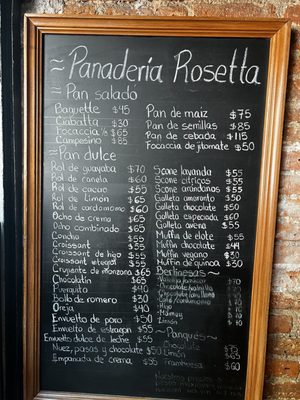 ~ Panadería Rosetta
~ Pan salado
Baguette $45
Ciabatta $30
Focaccia ½ $65
Campesino $85
Pan de maiz $75
Pan de semillas $85
Pan de cebada $115
Focaccia de jitomate $50
~ Pan dulce
Rol de guayaba $70
Rol de canela $60
Rol de cacao $55
Rol de Limón $65
Rol de cardamomo $60
Ocho de crema $65
Ocho combinado $65
Concha $55
Croissant $55
Croissant de higo $55
Croissant integral $55
Crujiente de manzana $65
Chocolatin $65
Panqué $40
Bollo de romero $30
Oreja $40
Envuelto de poro $50
Envuelto de estragon $55
Envuelto dulce de leche $55
Nuez, pasas y chocolate $50
Empanada de crema $55
Scone lavanda $55
Scone citricos $55
Scone arándanos $55
Galleta amaranto $50
Galleta chocolate $50
Galleta especiada $60
Galleta avena $55
Muffin de elote $55
Muffin chocolate $44
Muffin vegano $30
Muffin de quinoa $30
~ Berlinesas ~
~ Panqués ~
Chocolate $75
Limón $65
Frambuesa $60